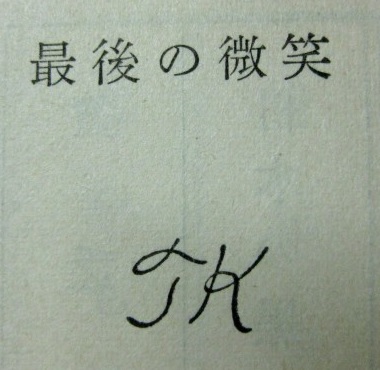 最後の微笑
TK